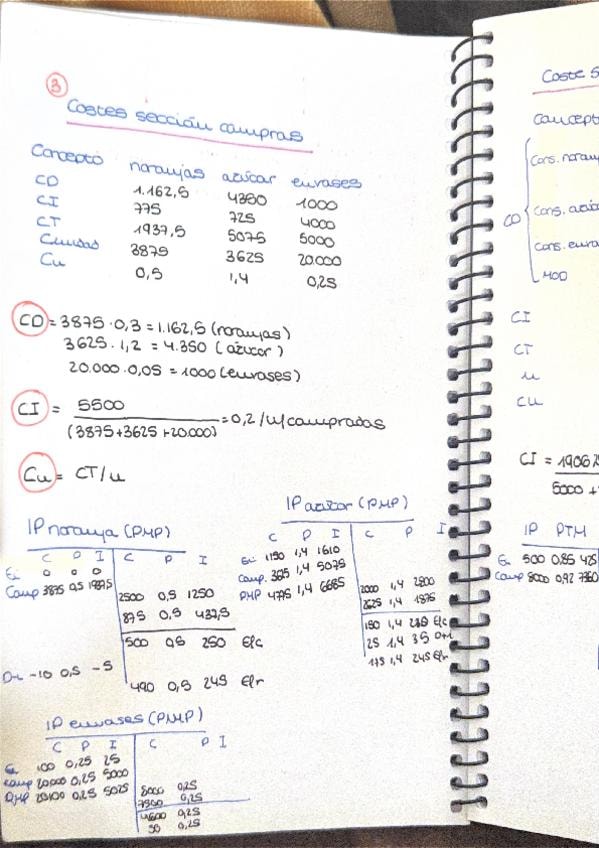 3
Costes sección compras
Concepto naranjas azúcar envases
CD 1.162,5 4350 1000
CI 775 725 4000
CT 1937,5 5075 5000
3875 3625 20.000
Cu 0,5 1,4 0,25
CD = 3875 · 0,3 = 1.162,5 (naranjas)
3625 · 1,2 = 4.350 (azúcar)
20.000 · 0,05 = 1000 (envases)
CI = 5500
(3875+3625+20.000) = 0,2 /u/compradas
Cu = CT/u
IP naranja (PMP)
C P I C P I
Ei 0 0 0
Comp 3875 0,5 1937,5
2500 0,5 1250
875 0,5 437,5
500 0,5 250 Efc
-10 0,5 -5
490 0,5 245 Efr
IP azúcar (PMP)
C P I C P I
Ei 1150 1,4 1610
Comp. 3625 1,4 5075
PMP 4775 1,4 6685
2000 1,4 2800
2625 1,4
150 1,4 Efc
25 1,4 35
175 1,4 245 Efr
IP envases (PMP)
C P I C P I
Ei 100 0,25 25
Comp 20000 0,25 5000
PMP 20100 0,25 5025
8000 0,25
7500 0,25
4600 0,25
50 0,25
Coste s
Concepto
Cons. naran
CD
Cons. azúc
Cons. enva
MOD
CI
CT
u
Cu
CI = 19062
5000 +
IP PTM
Ei 500 0,85 425
Comp 8000 0,92 7360